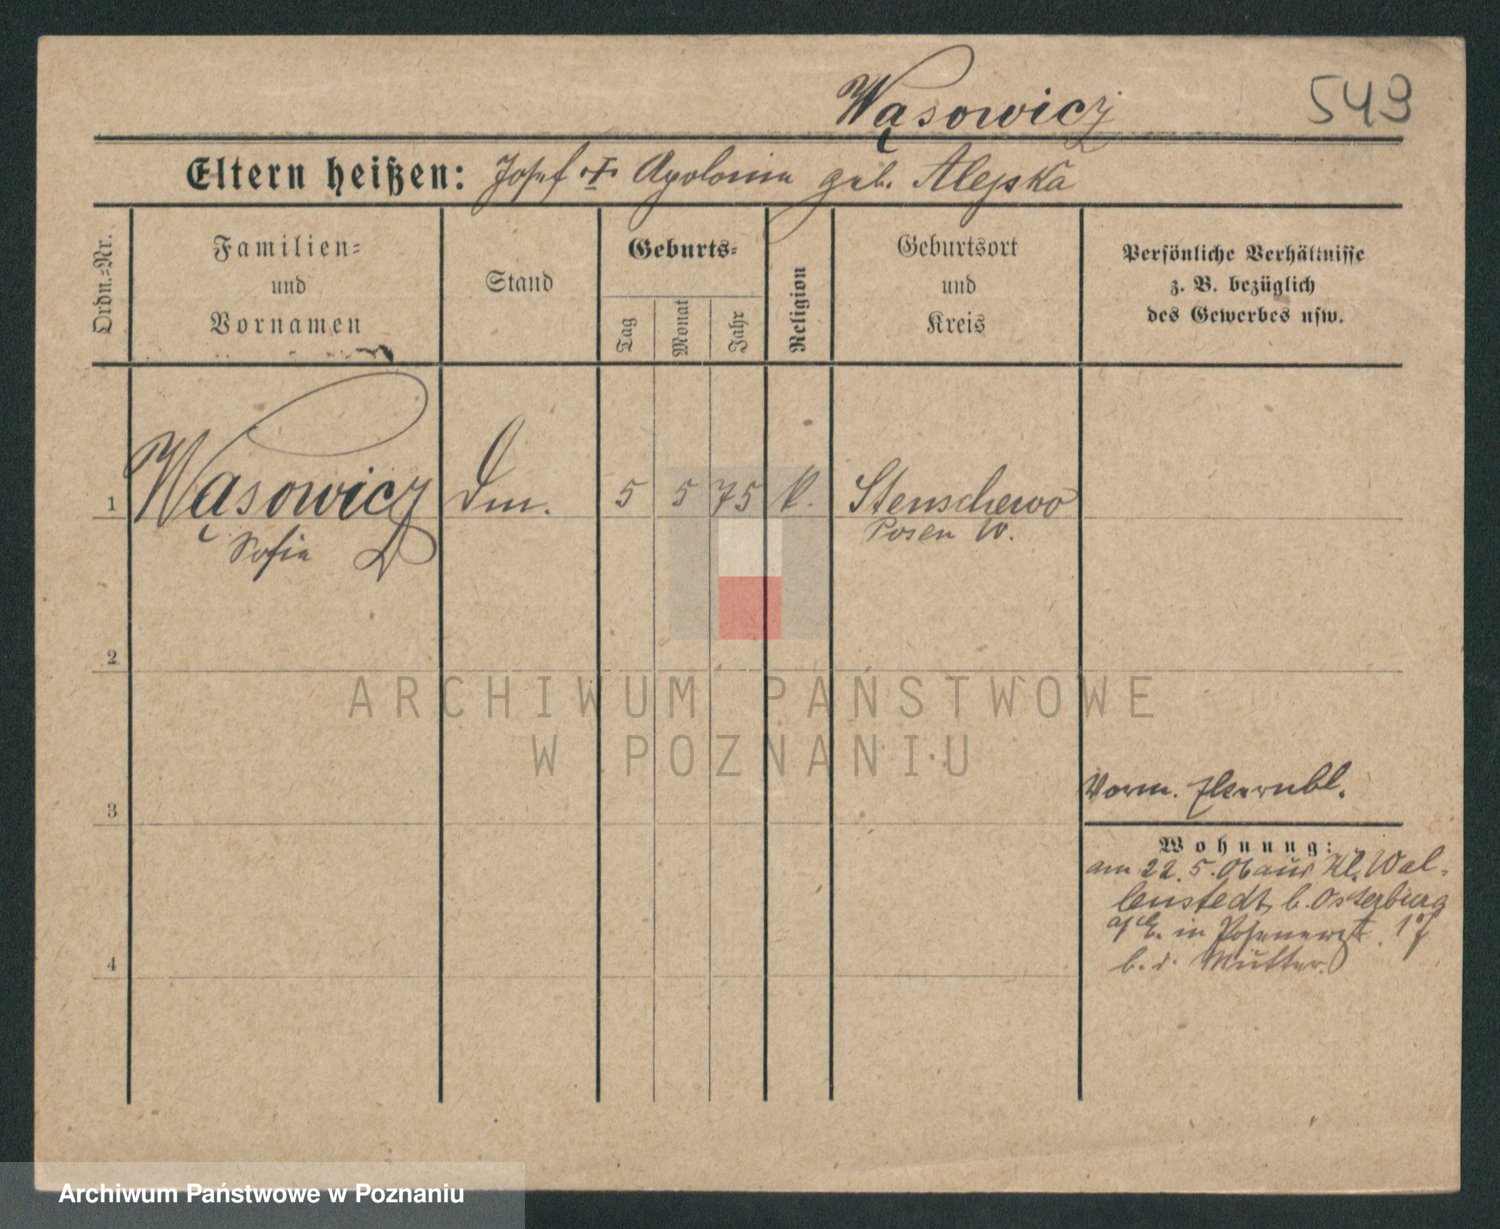 Wąsowicz
549
Eltern heißen: Josef Apolonia geb. Alejska
Ordn.=Nr.
Familien=
und
Vornamen
Stand
Geburts=
Tag
Monat
Jahr
Religion
Geburtsort
und
Kreis
Persönliche Verhältnisse
z. B. bezüglich
des Gewerbes usw.
1
Wąsowicz
Sofia
Dm.
5 5 75
k.
Stenschewo
Posen W.
2
ARCHIWUM PAŃSTWOWE
W POZNANIU
3
Vorm.
Wohnung:
am 22.5.06 aus Kl. Wal-
lenstedt b. Osterburg
a/E. in 17
b. d. Mutter.
4
Archiwum Państwowe w Poznaniu